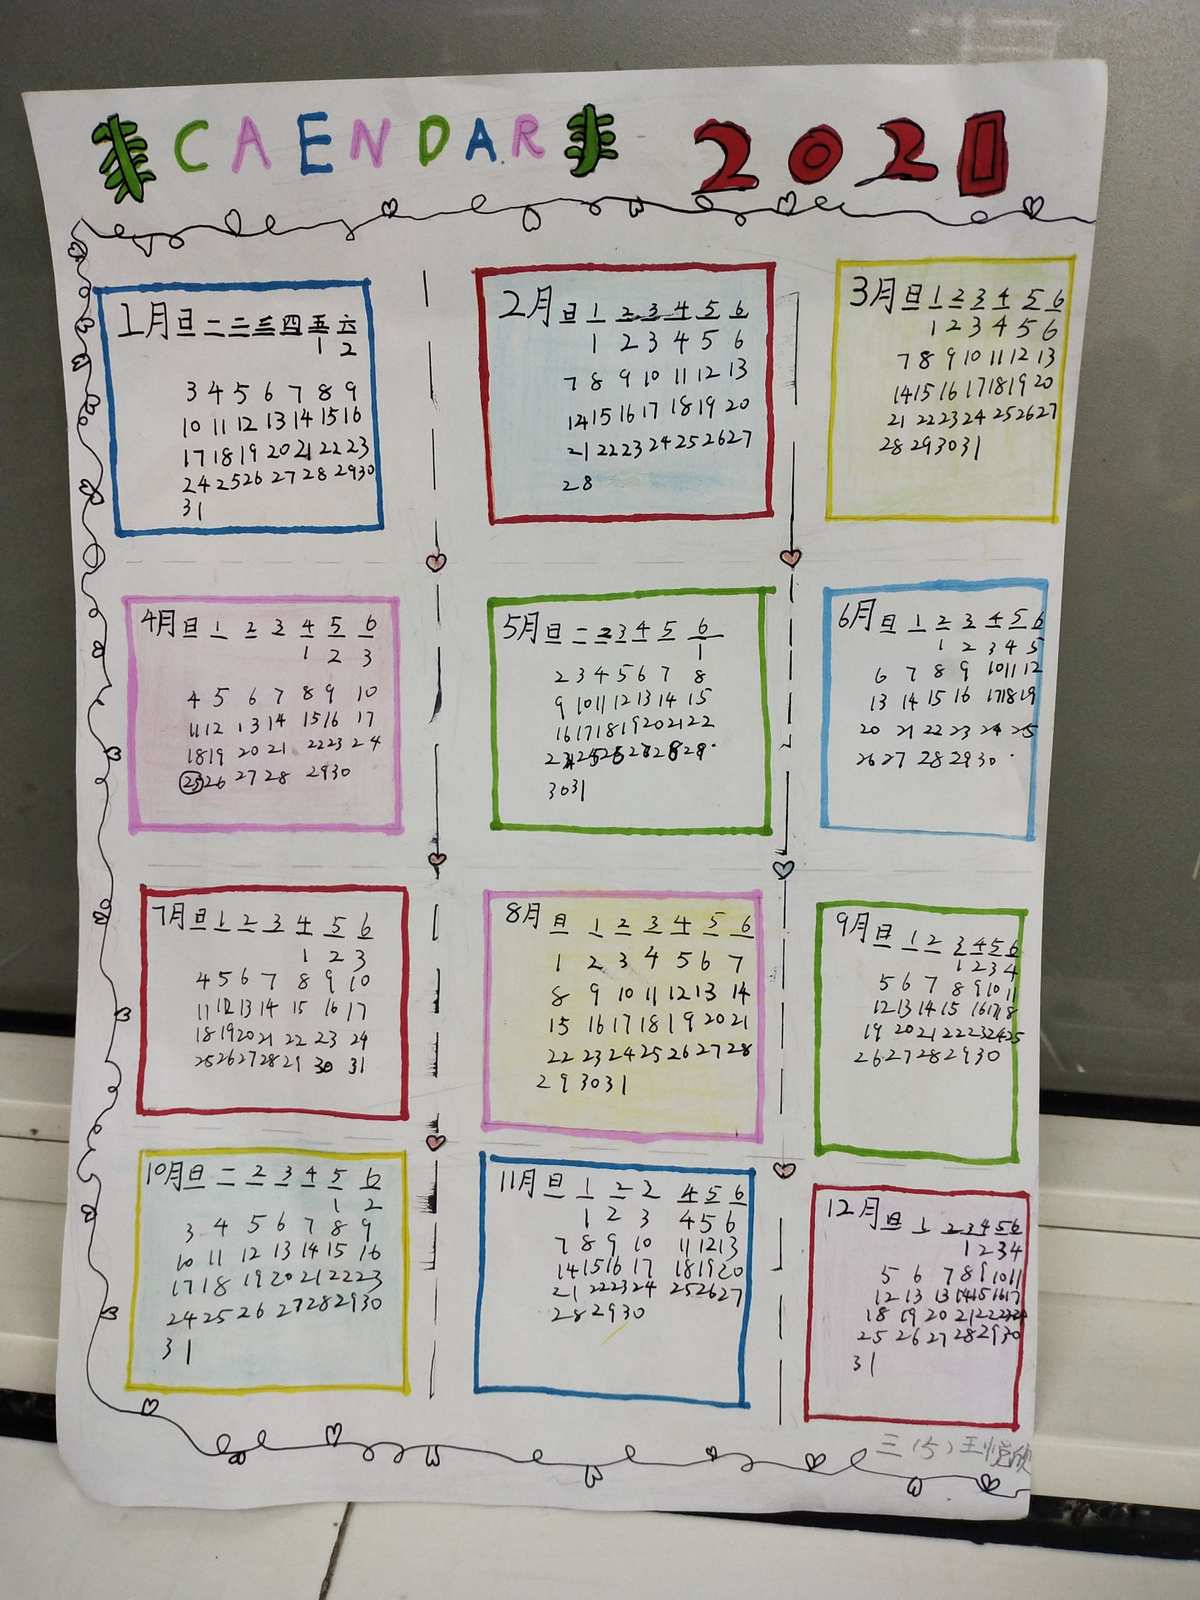 CAENDAR 2021
1月 日 二 二 三 四 五 六
1 2
3 4 5 6 7 8 9
10 11 12 13 14 15 16
17 18 19 20 21 22 23
24 25 26 27 28 29 30
31
2月 日 1 2 3 4 5 6
1 2 3 4 5 6
7 8 9 10 11 12 13
14 15 16 17 18 19 20
21 22 23 24 25 26 27
28
3月 日 1 2 3 4 5 6
1 2 3 4 5 6
7 8 9 10 11 12 13
14 15 16 17 18 19 20
21 22 23 24 25 26 27
28 29 30 31
4月 日 1 2 3 4 5 6
1 2 3
4 5 6 7 8 9 10
11 12 13 14 15 16 17
18 19 20 21 22 23 24
25 26 27 28 29 30
5月 日 二 2 3 4 5 6
1
2 3 4 5 6 7 8
9 10 11 12 13 14 15
16 17 18 19 20 21 22
30 31
6月 日 1 2 3 4 5 6
1 2 3 4 5
6 7 8 9 10 11 12
13 14 15 16 17 18 19
20 21 22 23 24 25
26 27 28 29 30
7月 日 1 2 3 4 5 6
1 2 3
4 5 6 7 8 9 10
11 12 13 14 15 16 17
18 19 20 21 22 23 24
25 26 27 28 29 30 31
8月 日 1 2 3 4 5 6
1 2 3 4 5 6 7
8 9 10 11 12 13 14
15 16 17 18 19 20 21
22 23 24 25 26 27 28
29 30 31
9月 日 1 2 3 4 5 6
1 2 3 4
5 6 7 8 9 10 11
12 13 14 15 16 17 18
19 20 21 22 23 24 25
26 27 28 29 30
10月 日 二 2 3 4 5 6
1 2
3 4 5 6 7 8 9
10 11 12 13 14 15 16
17 18 19 20 21 22 23
24 25 26 27 28 29 30
31
11月 日 1 2 2 4 5 6
1 2 3 4 5 6
7 8 9 10 11 12 13
14 15 16 17 18 19 20
21 22 23 24 25 26 27
28 29 30
12月 日 1 2 3 4 5 6
1 2 3 4
5 6 7 8 9 10 11
12 13 13 14 15 16 17
18 19 20 21 22 23 24
25 26 27 28 29 30
31
三(5)王悦欣